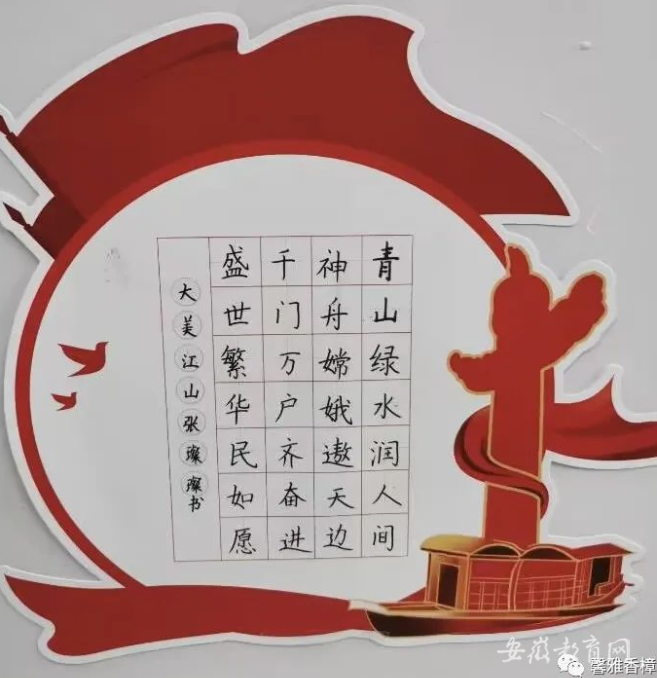 青山绿水润人间
神舟嫦娥遨天边
千门万户齐奋进
盛世繁华民如愿
大美江山张璨璨书
安徽教育网
馨雅香樟